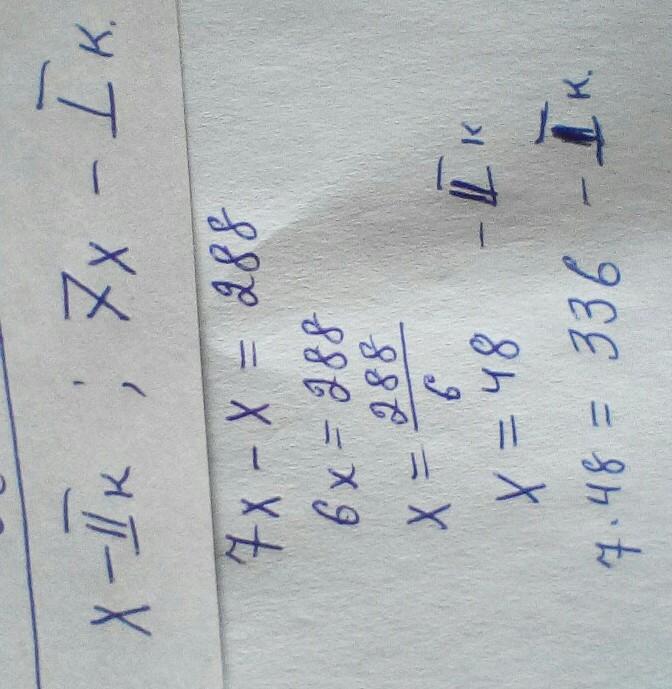 x - II к ; 7x - I к.
7x - x = 288
6x = 288
x = 288/6
x = 48 - II к
7·48 = 336 - I к.